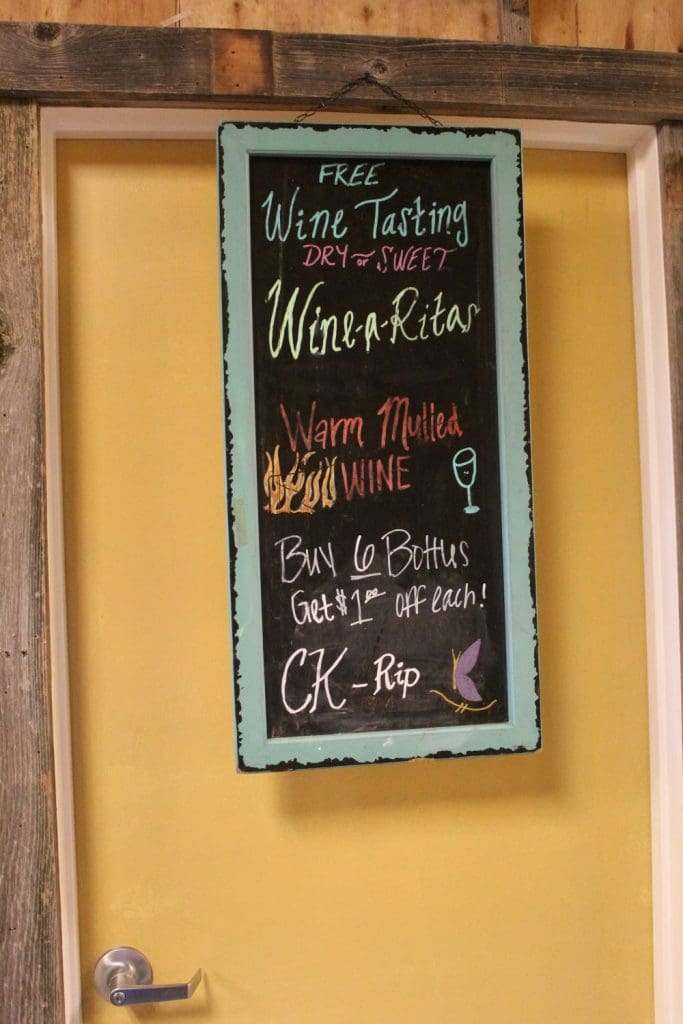 FREE
Wine Tasting
DRY or SWEET
Wine-a-Ritas
Warm Mulled
WINE
Buy 6 Bottles
Get $1.00 off each!
CK - Rip